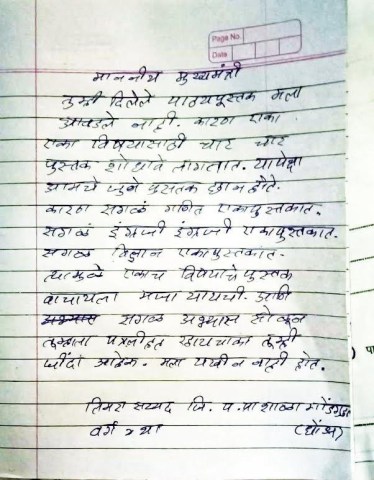 Page No.
Date
माननीय मुख्यमंत्री
तुम्ही दिलेले पाठ्यपुस्तक मला
आवडले नाही. कारण एका
एका विषयासाठी चार चार
पुस्तक शोधावे लागतात. यापेक्षा
आमचे जुने पुस्तक छान होते.
कारण सगळं गणित एकापुस्तकात.
सगळं इंग्रजी इंग्रजी एकापुस्तकात.
सगळं विज्ञान एकापुस्तकात.
त्यामुळे एकाच विषयाचे पुस्तक
वाचायला मजा यायची. आणि
अभ्यास सगळं अभ्यास सोडून
तुम्हाला पत्र लिहीत
आहेत. मला नाही होत.
सय्यद जि. प. प्रा शाळा
वर्ग ४ था